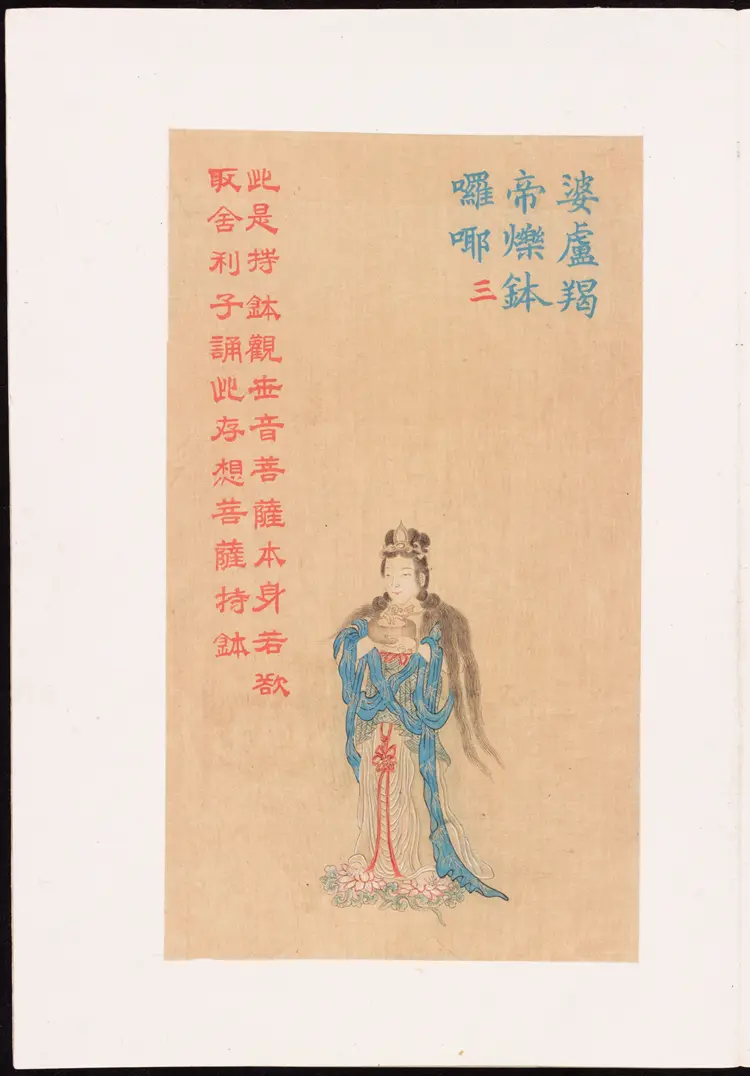 婆盧羯
帝爍鉢
囉耶三
此是持鉢觀世音菩薩本身若欲
取舍利子誦此存想菩薩持鉢